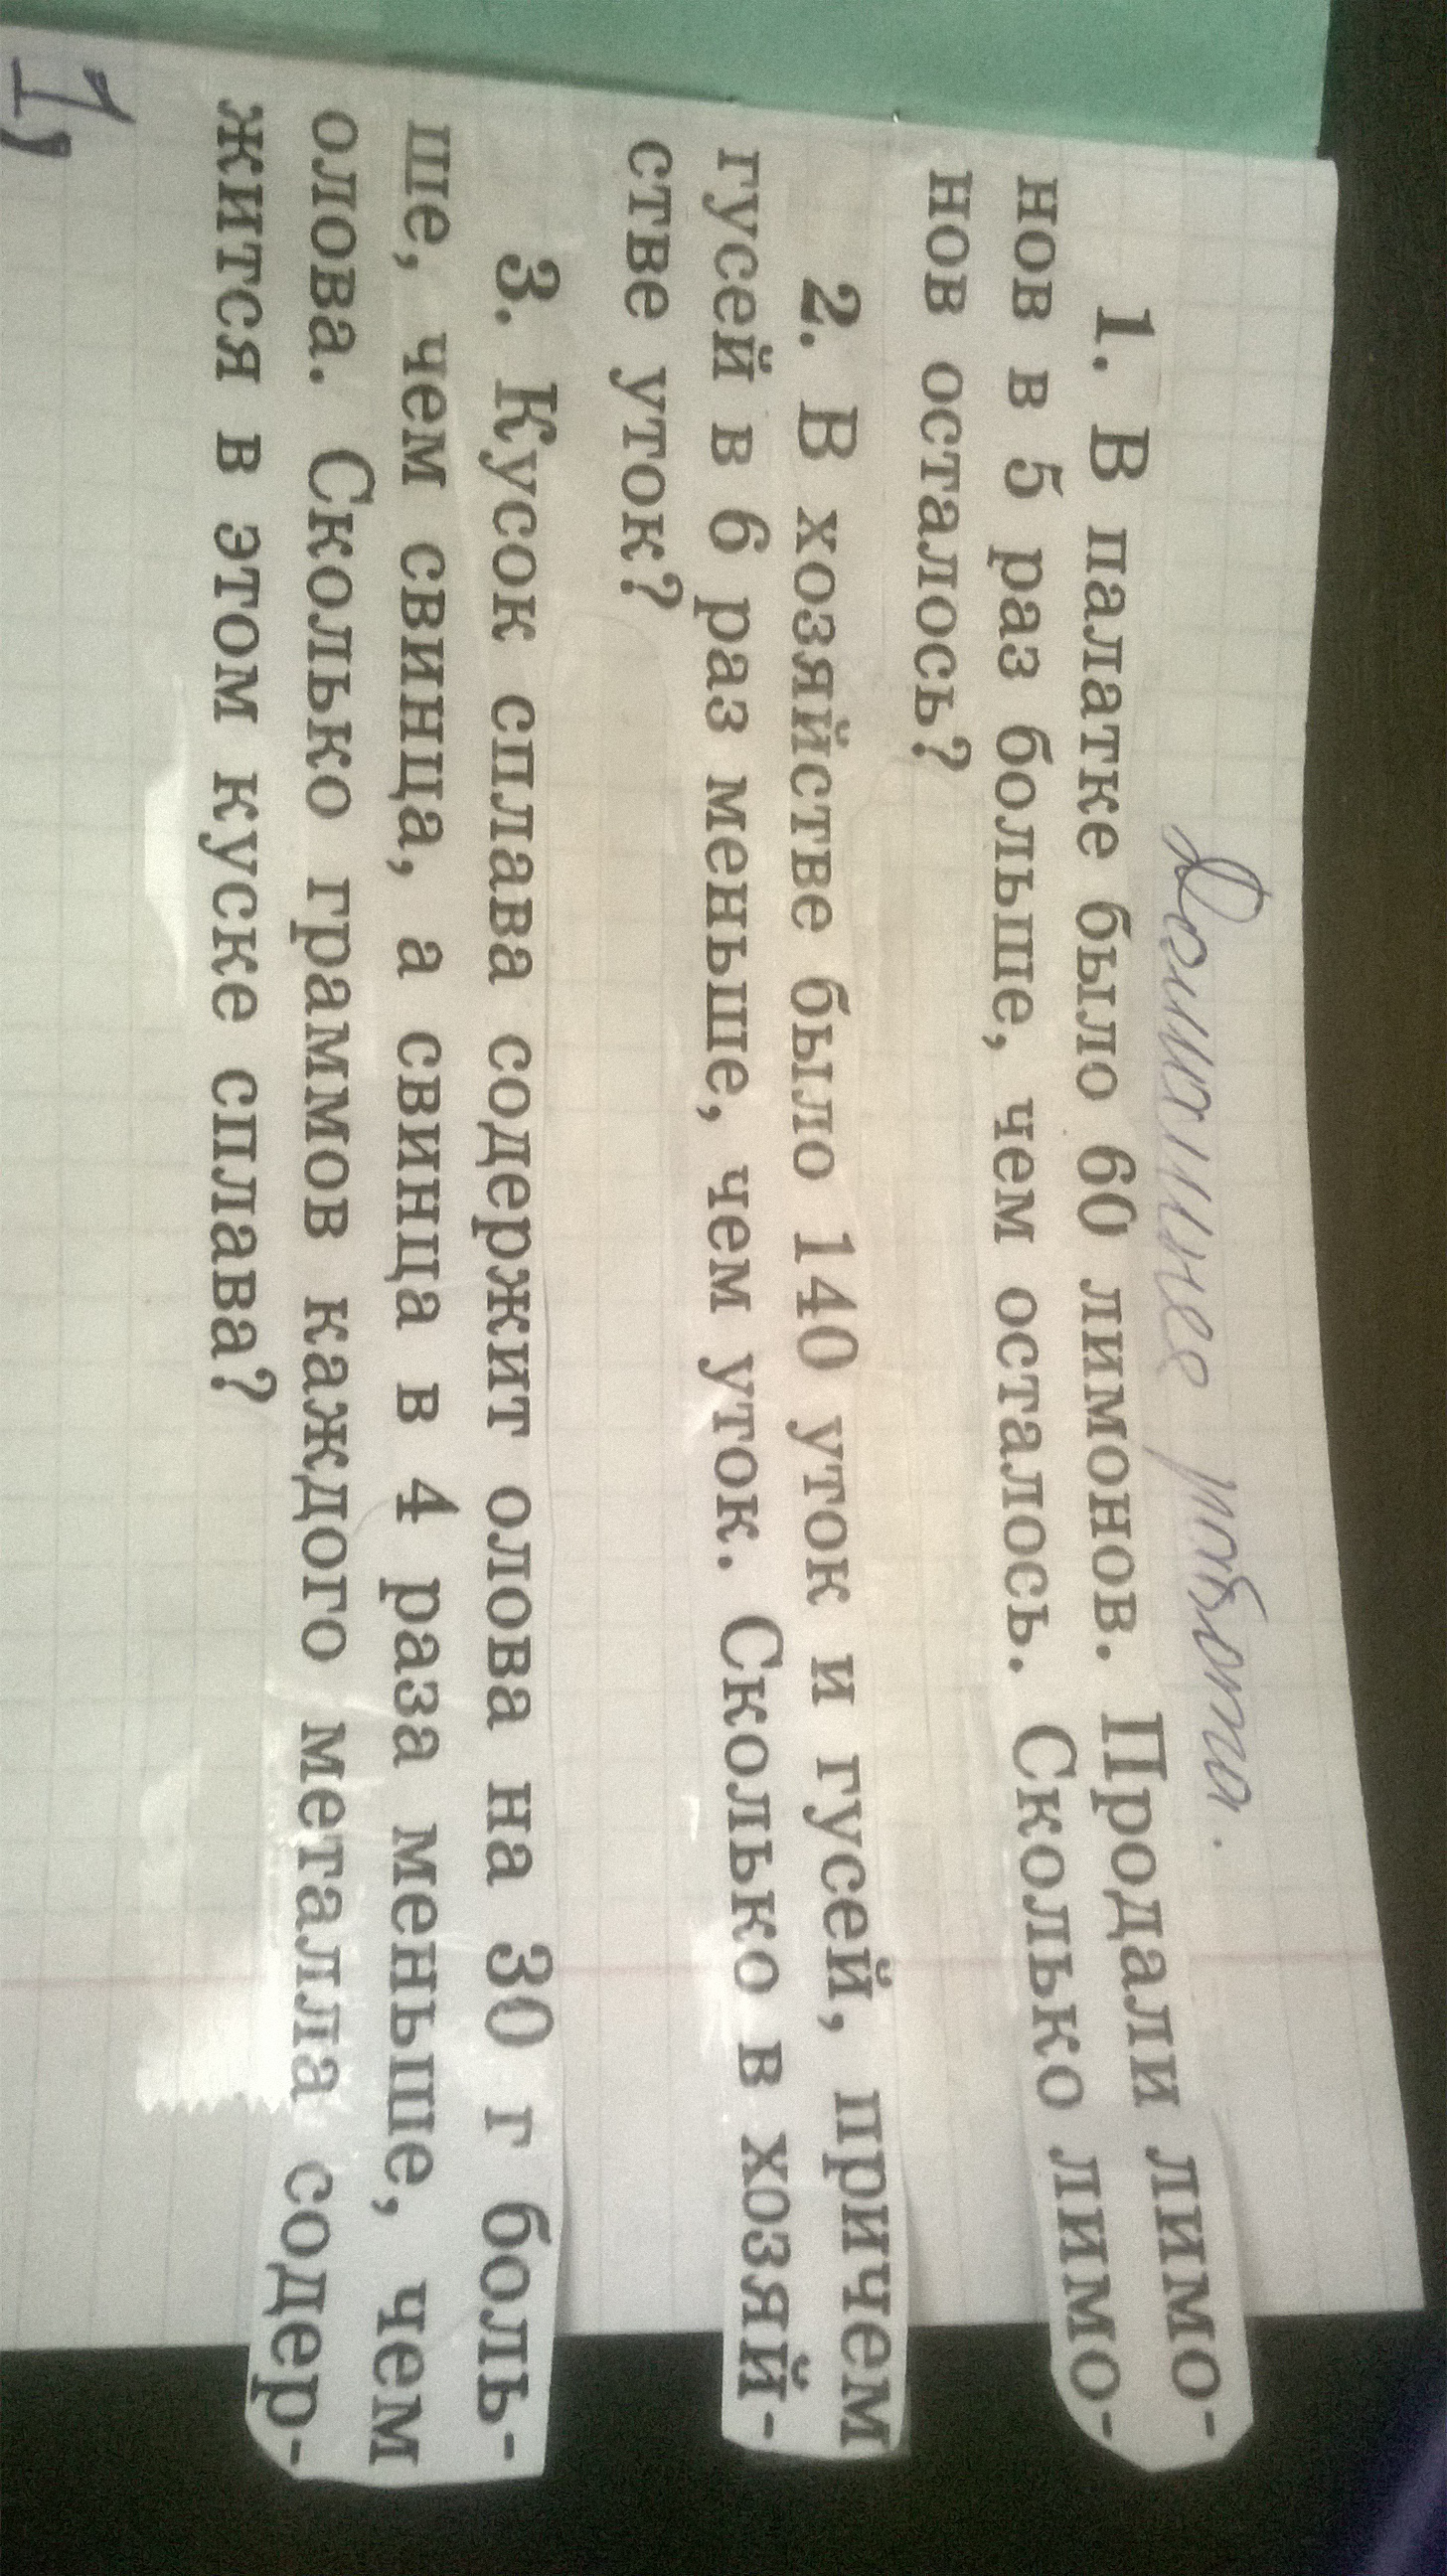 Домашняя работа.
1. В палатке было 60 лимонов. Продали лимо-
нов в 5 раз больше, чем осталось. Сколько лимо-
нов осталось?
2. В хозяйстве было 140 уток и гусей, причем
гусей в 6 раз меньше, чем уток. Сколько в хозяй-
стве уток?
3. Кусок сплава содержит олова на 30 г боль-
ше, чем свинца, а свинца в 4 раза меньше, чем
олова. Сколько граммов каждого металла содер-
жится в этом куске сплава?
1)